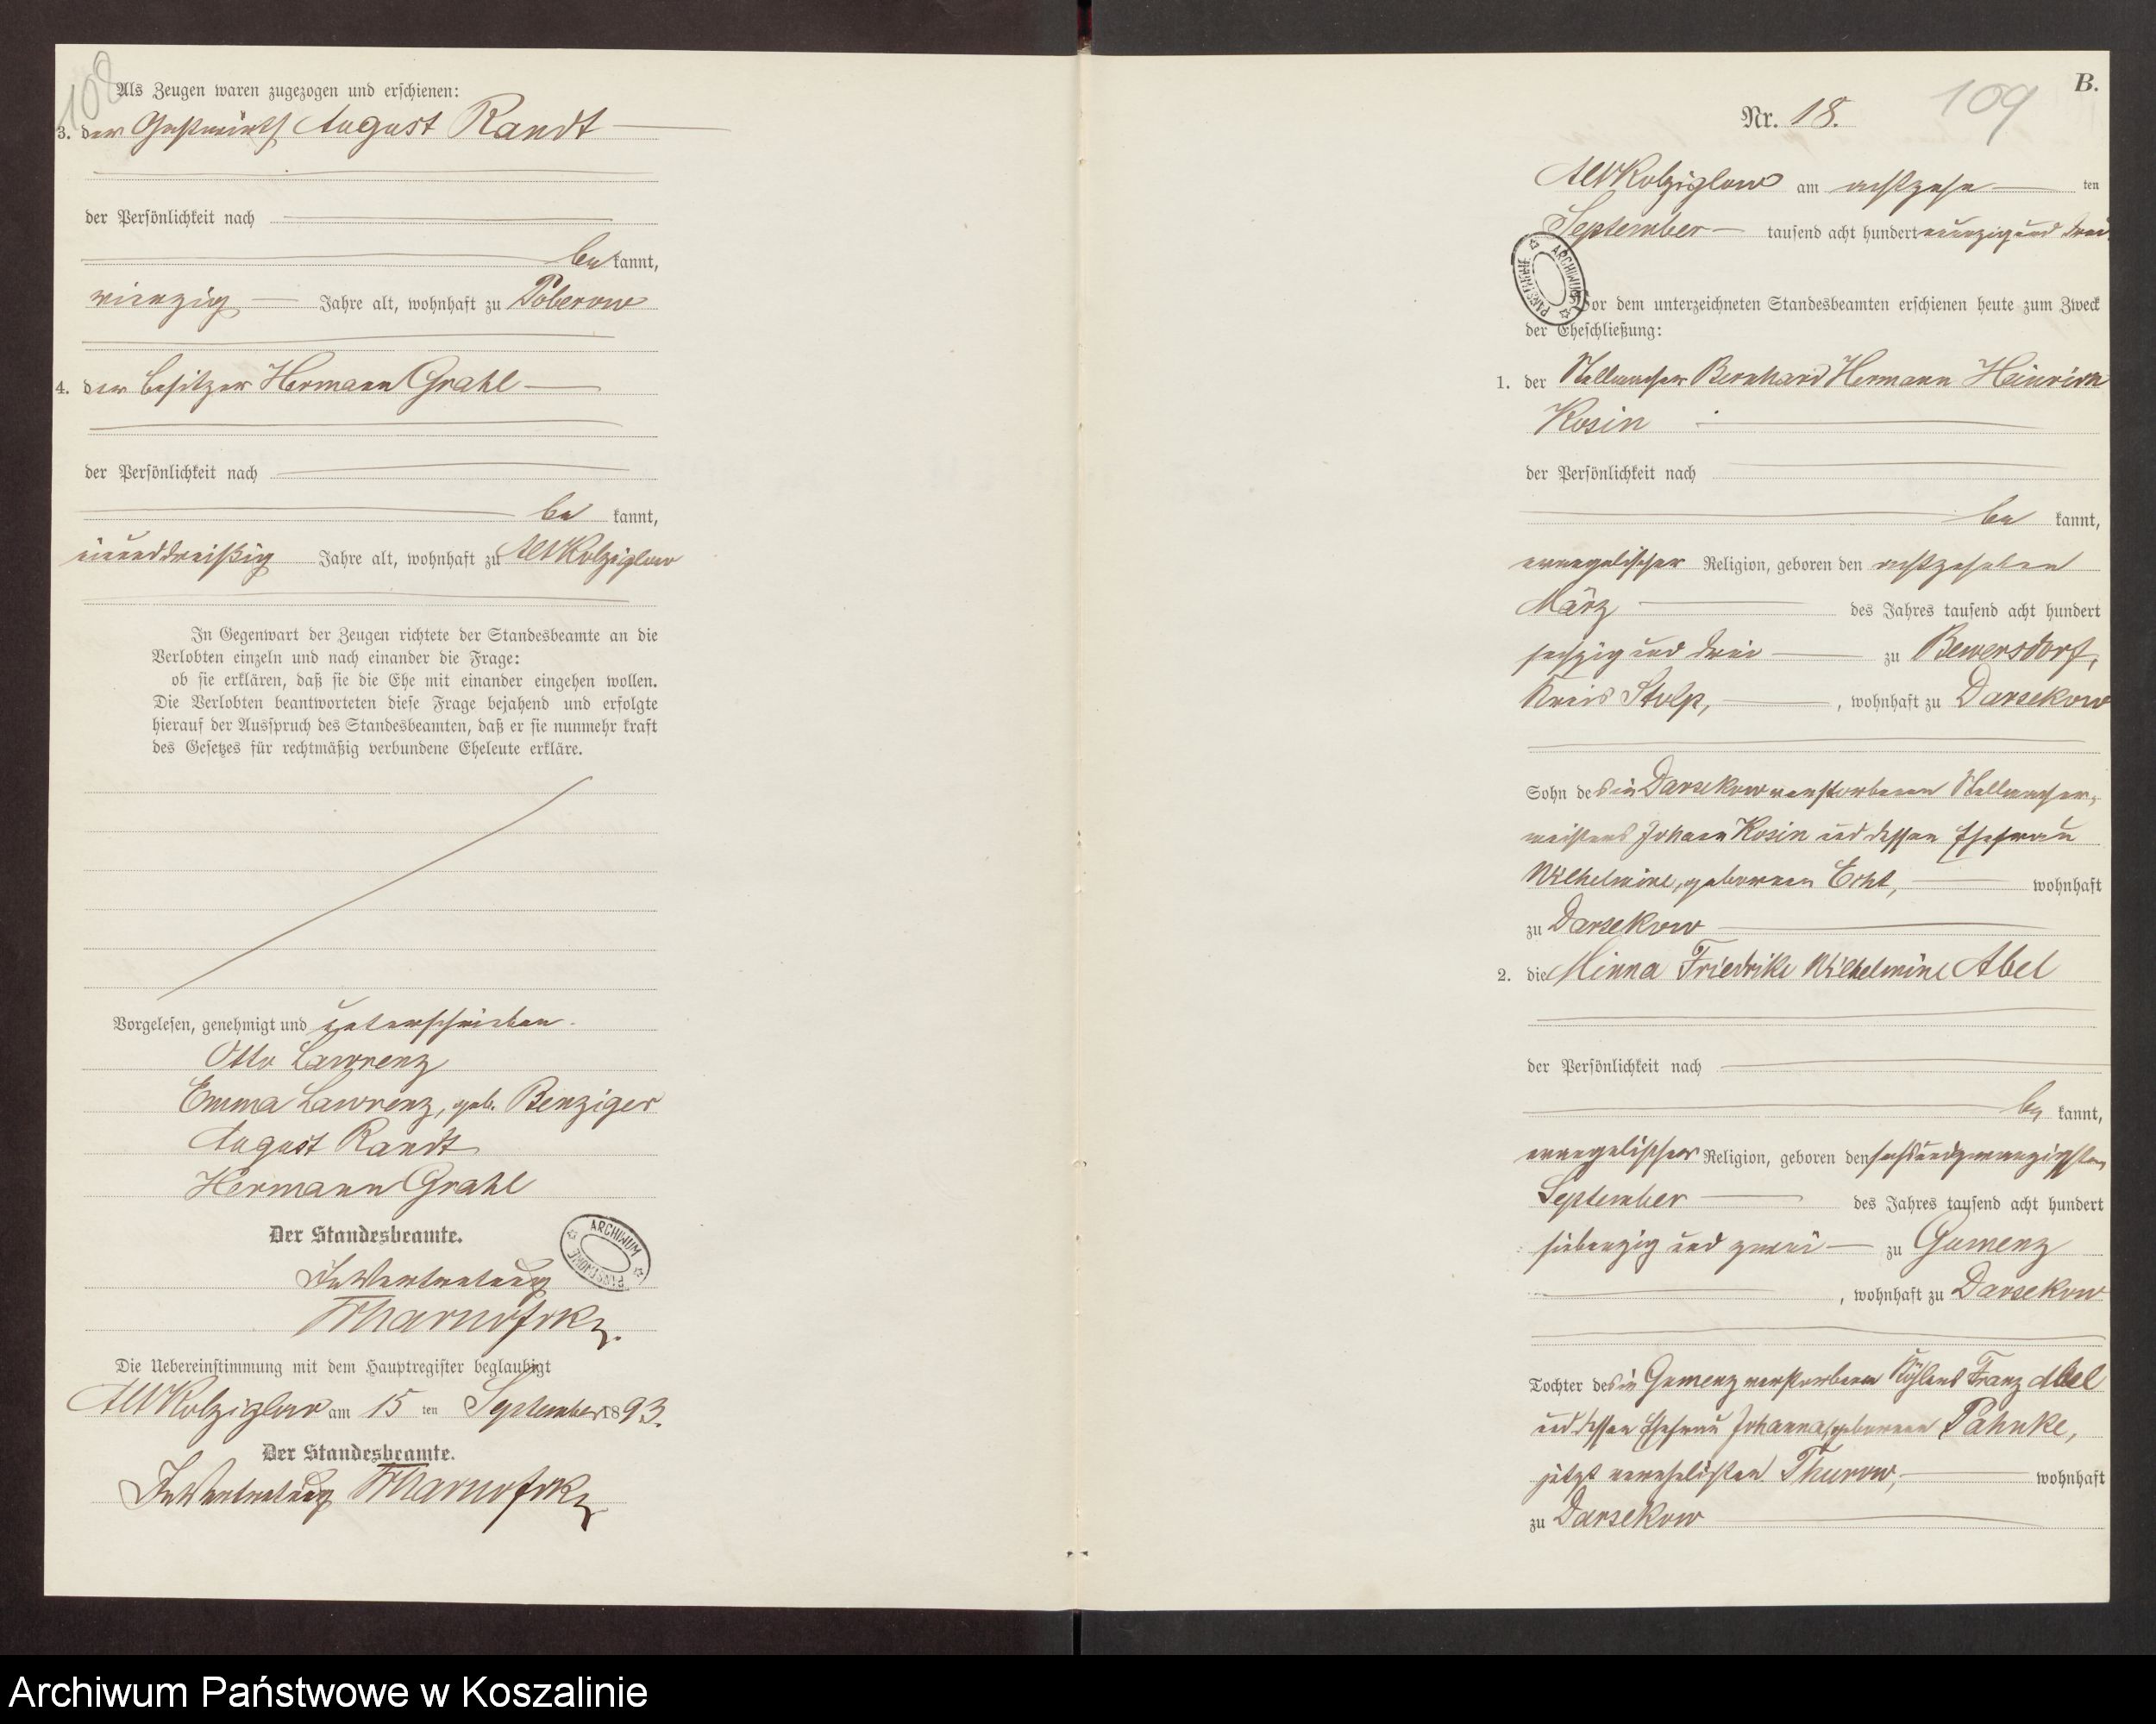 108
Als Zeugen waren zugezogen und erschienen:
3. der Gastwirth August Randt
der Persönlichkeit nach
be kannt,
vierzig Jahre alt, wohnhaft zu Poberow
4. der Besitzer Hermann Grahl
der Persönlichkeit nach
be kannt,
einunddreißig Jahre alt, wohnhaft zu Alt Kolziglow
In Gegenwart der Zeugen richtete der Standesbeamte an die
Verlobten einzeln und nach einander die Frage:
ob sie erklären, daß sie die Ehe mit einander eingehen wollen.
Die Verlobten beantworteten diese Frage bejahend und erfolgte
hierauf der Ausspruch des Standesbeamten, daß er sie nunmehr kraft
des Gesetzes für rechtmäßig verbundene Eheleute erkläre.
Vorgelesen, genehmigt und unterschrieben.
Otto Lawrenz
Emma Lawrenz, geb. Benziger
August Randt
Hermann Grahl
Der Standesbeamte.
ARCHIWUM PAŃSTWOWE
In Vertretung
Die Uebereinstimmung mit dem Hauptregister beglaubigt
Alt Kolziglow am 15 ten September 1893.
Der Standesbeamte.
In Vertretung
B.
109
Nr. 18.
Alt Kolziglow am achtzehn ten
September tausend acht hundert neunzig und drei
ARCHIWUM PAŃSTWOWE
Vor dem unterzeichneten Standesbeamten erschienen heute zum Zweck
der Eheschließung:
1. der Stellmacher Bernhard Hermann Heinrich
Kosin
der Persönlichkeit nach
be kannt,
evangelischer Religion, geboren den achtzehnten
März des Jahres tausend acht hundert
sechzig und drei zu Bewersdorf,
Kreis Stolp, , wohnhaft zu Darsekow
Sohn des in Darsekow verstorbenen Stellmacher-
meisters Johann Kosin und dessen Ehefrau
Wilhelmine, geborenen Echt, wohnhaft
zu Darsekow
2. die Minna Friedrike Wilhelmine Abel
der Persönlichkeit nach
be kannt,
evangelischer Religion, geboren den sechsundzwanzigsten
September des Jahres tausend acht hundert
siebenzig und zwei zu Gumenz
, wohnhaft zu Darsekow
Tochter des in Gumenz verstorbenen Franz Abel
und dessen Ehefrau Johanna, geborenen Pahnke,
jetzt verehelichten Thurow, wohnhaft
zu Darsekow
Archiwum Państwowe w Koszalinie